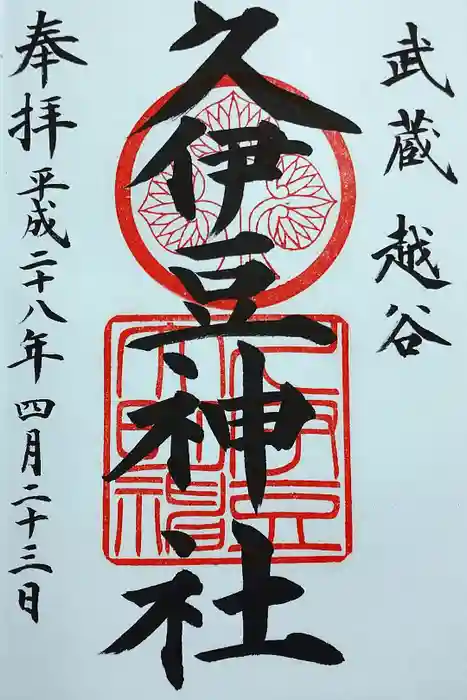 武蔵越谷
久伊豆神社
奉拝平成二十八年四月二十三日